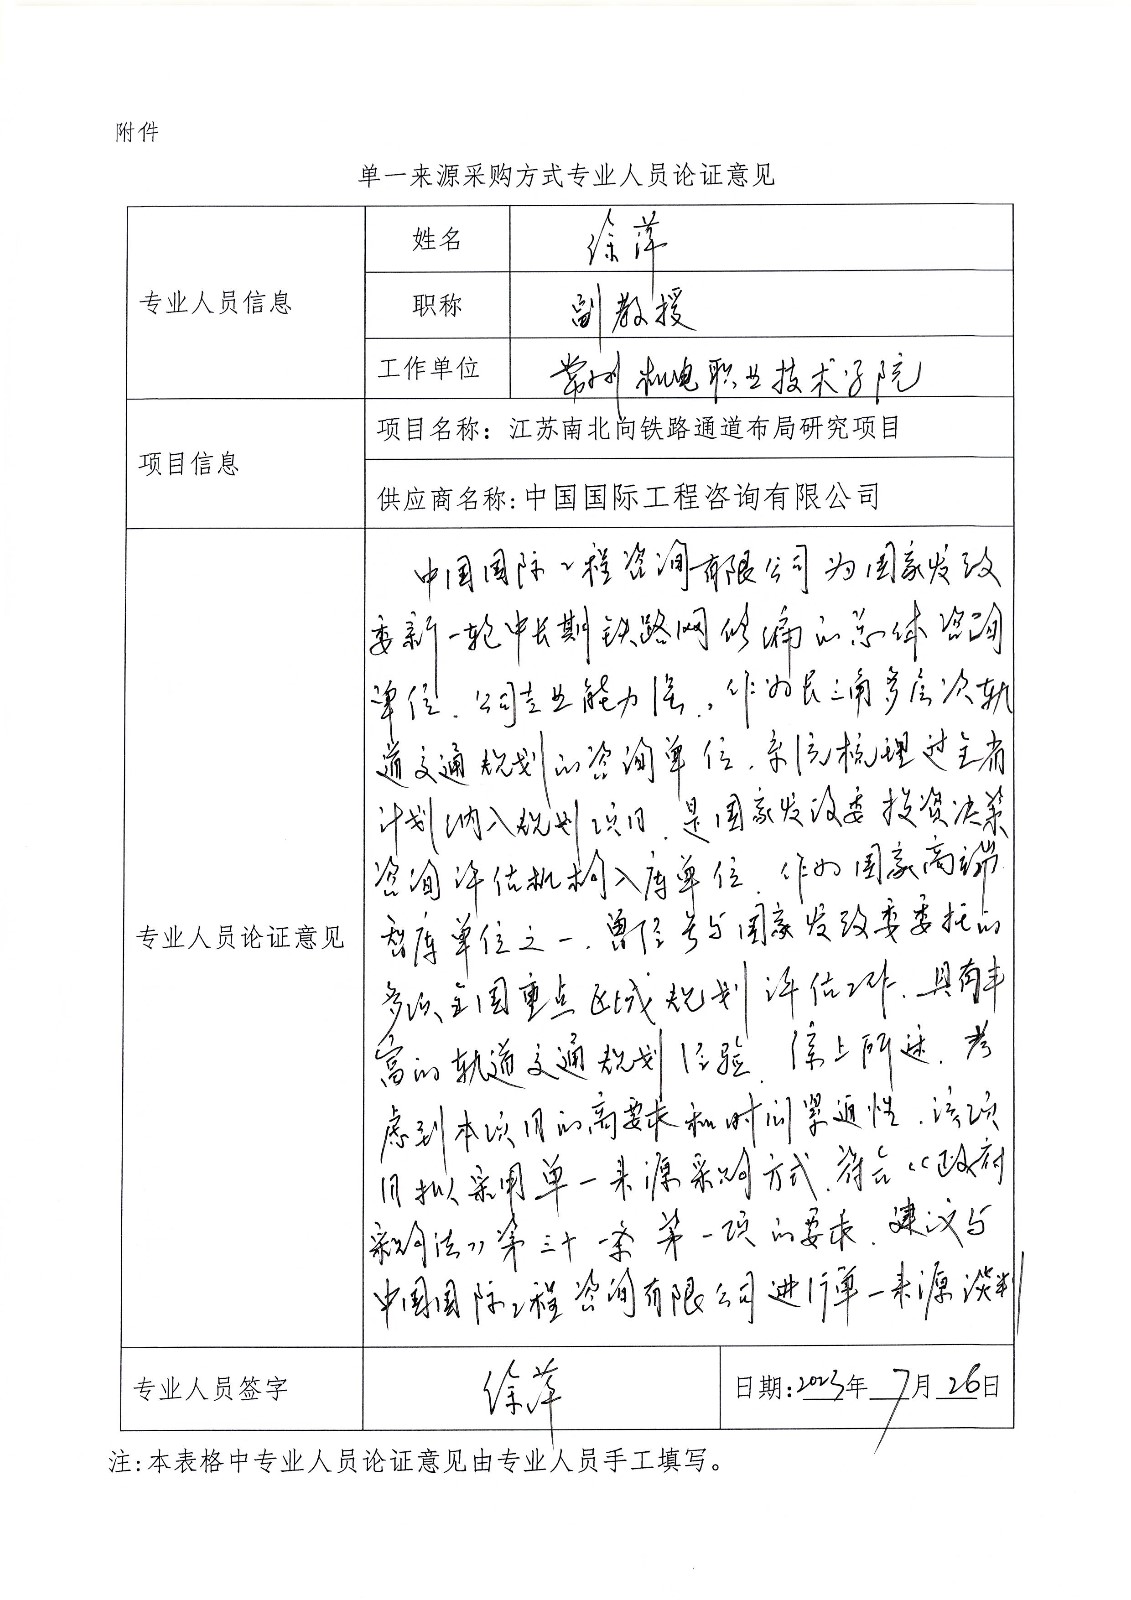 附件
单一来源采购方式专业人员论证意见
专业人员信息
姓名
徐萍
职称
副教授
工作单位
常州机电职业技术学院
项目信息
项目名称：江苏南北向铁路通道布局研究项目
供应商名称:中国国际工程咨询有限公司
专业人员论证意见
中国国际工程咨询有限公司为国家发改
委新一轮中长期铁路网修编的总体咨询
单位、公司专业能力强，作为长三角多层次轨
道交通规划的咨询单位，系统梳理过全省
计划纳入规划项目，是国家发改委投资决策
咨询评估机构入库单位，作为国家高端
智库单位之一，曾经参与国家发改委委托的
多次全国重点区域规划评估工作，具有丰
富的轨道交通规划经验，综上所述，考
虑到本项目的高要求和时间紧迫性，该项
目拟采用单一来源采购方式，符合《政府
采购法》第三十一条第一项的要求，建议与
中国国际工程咨询有限公司进行单一来源谈判
专业人员签字
徐萍
日期:2023年7月26日
注:本表格中专业人员论证意见由专业人员手工填写。